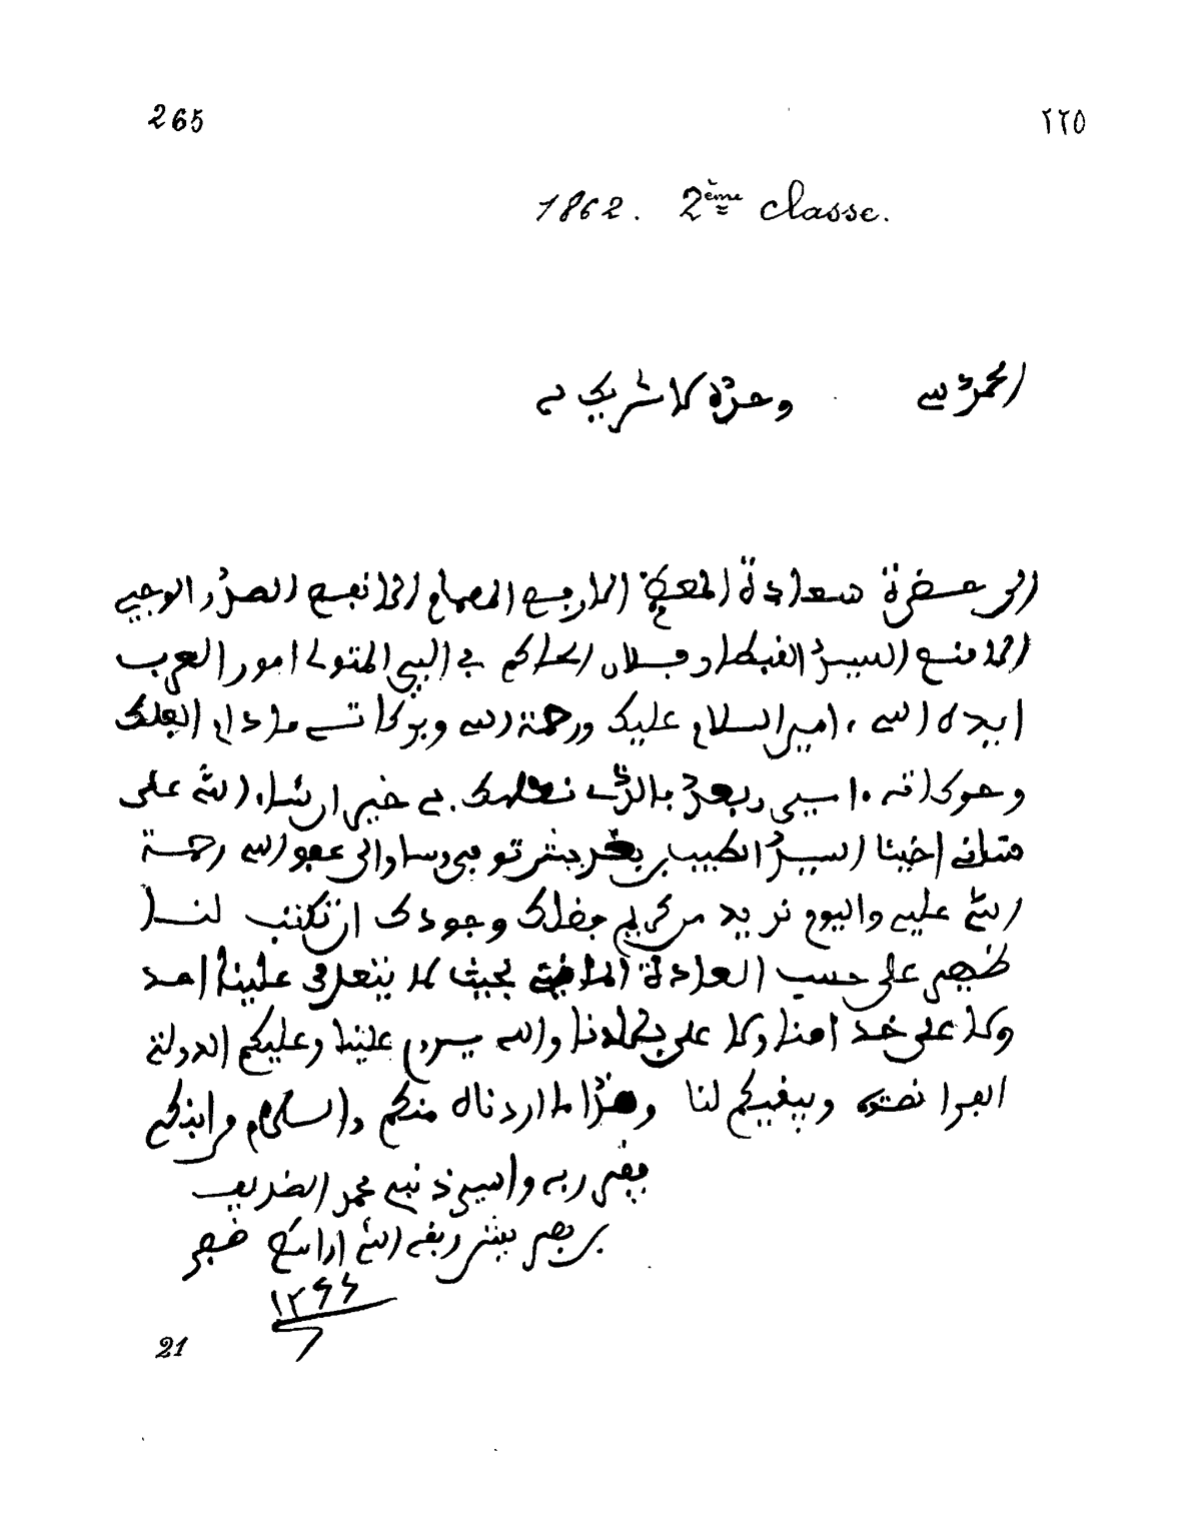 265
٢٦٥
1862. 2ème classe.
الحمد لله وحده لا شريك له
الى حضرة سعادة المعظم الارفع الهمام الانفع الصدر الوجيه
الامنع السيد القبطان فلان الحاكم في البير المتولى امور العرب
ايده الله امين السلام عليك ورحمة الله وبركاته ما دام الفلك
وحركاته اسيدي وبعد بالذي نعلمك به خير ان شاء الله على
شان اخينا السيد الطيب بن توفي وسار الى عفو الله رحمة
الله عليه واليوم نريد من كريم فضلك وجودك ان تكتب لنا
ظهير على حسب العادة الماضية بحيث لا يتعدى علينا احد
ولا على خدامنا ولا على بلادنا والله يديم علينا وعليكم الدولة
الفرانصوية ويبقيكم لنا وهذا ما اردناه منكم والسلام من ابنكم
فقير ربه واسير ذنبه محمد الضريف
بن وفقه الله امين
21